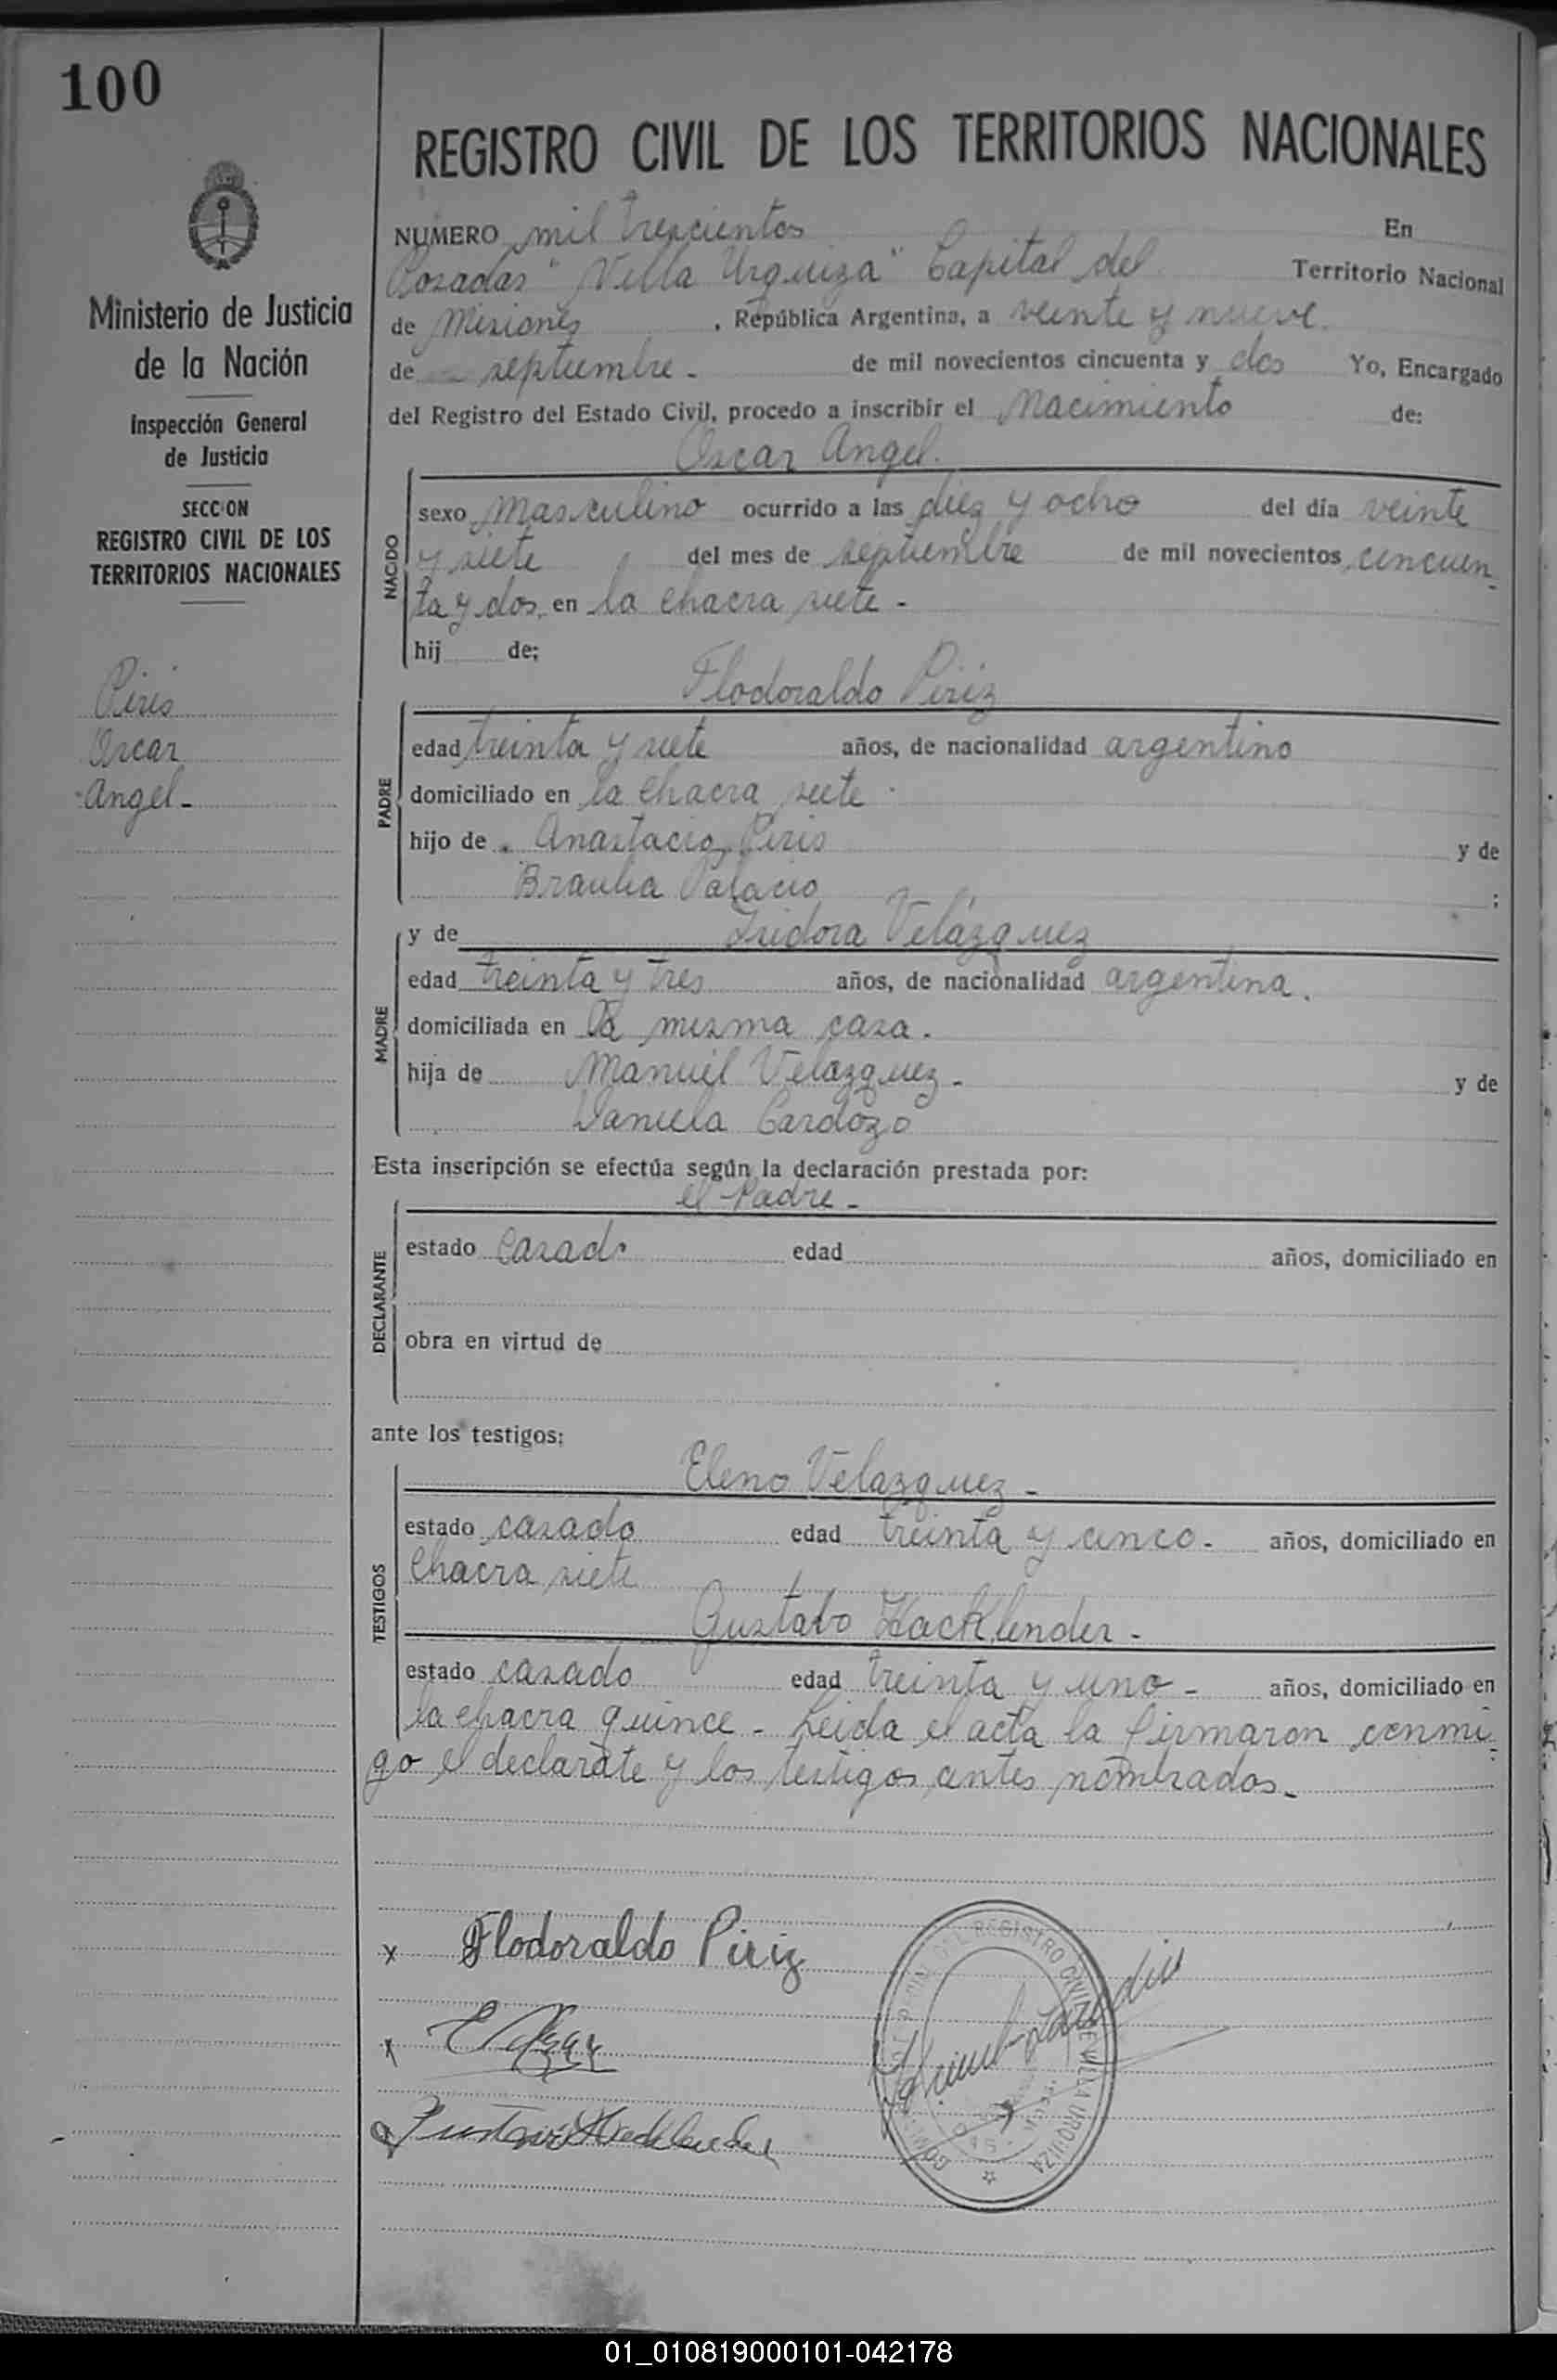 100
REGISTRO CIVIL DE LOS TERRITORIOS NACIONALES
Ministerio de Justicia
de la Nación
Inspección General
de Justicia
SECCION
REGISTRO CIVIL DE LOS
TERRITORIOS NACIONALES
Piris
Oscar
Angel-
NUMERO mil trescientos En
Posadas "Villa Urquiza" Capital del Territorio Nacional
de Misiones, República Argentina, a veinte y nueve
de septiembre - de mil novecientos cincuenta y dos Yo, Encargado
del Registro del Estado Civil, procedo a inscribir el Nacimiento de:
Oscar Angel.
NACIDO
sexo Masculino ocurrido a las diez y ocho del día veinte
y siete del mes de septiembre de mil novecientos cincuen
ta y dos, en la chacra siete -
hij de;
Flodoraldo Piriz
PADRE
edad treinta y siete años, de nacionalidad argentino
domiciliado en la chacra siete
hijo de Anastacio Piris y de
Braulia Palacio ;
MADRE
y de Isidora Velázquez
edad treinta y tres años, de nacionalidad argentina.
domiciliada en la misma casa.
hija de Manuel Velazquez - y de
Daniela Cardozo
Esta inscripción se efectúa según la declaración prestada por:
el Padre -
DECLARANTE
estado Casado edad años, domiciliado en
obra en virtud de
ante los testigos:
TESTIGOS
Eleno Velazquez -
estado casado edad treinta y cinco - años, domiciliado en
chacra siete
Gustabo Hacklender -
estado casado edad treinta y uno - años, domiciliado en
la chacra quince - Leida el acta la firmaron conmi
go el declarate y los testigos antes nombrados -
x Flodoraldo Piriz
x
Gustavo Hacklender
REGISTRO CIVIL DE VILLA URQUIZA
01_010819000101-042178